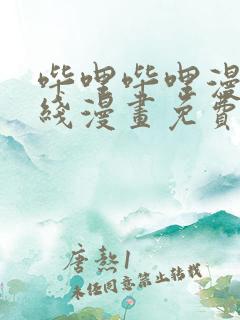 哔哩哔哩漫
线漫画免费
唐熬1
未经同意禁止转载